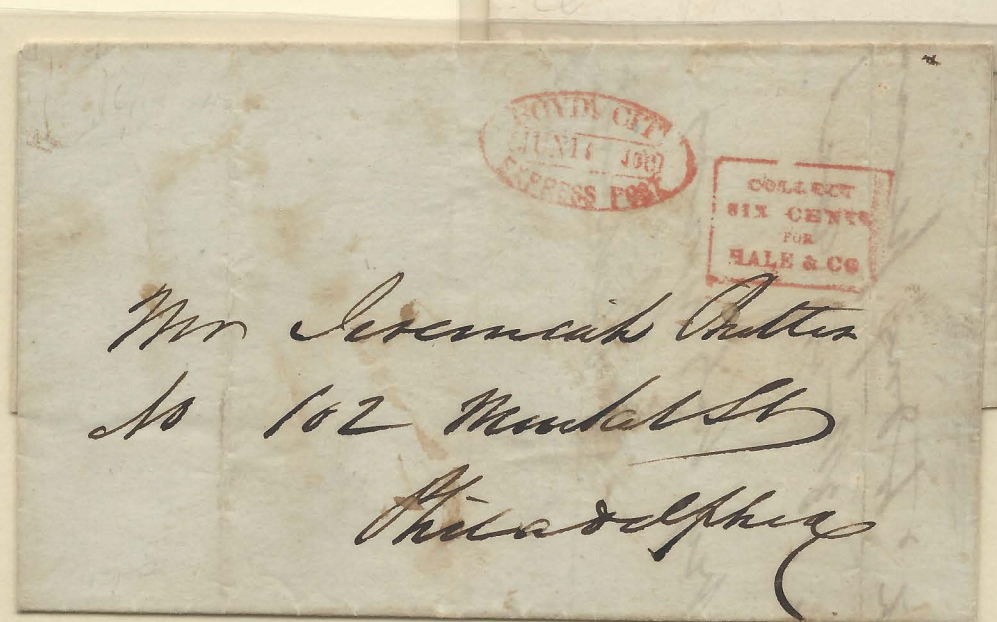 BOYD'S CITY
JUN 17
EXPRESS POST
COLLECT
SIX CENTS
FOR
HALE & CO
Mr Jeremiah
No 102 Market St
Philadelphia